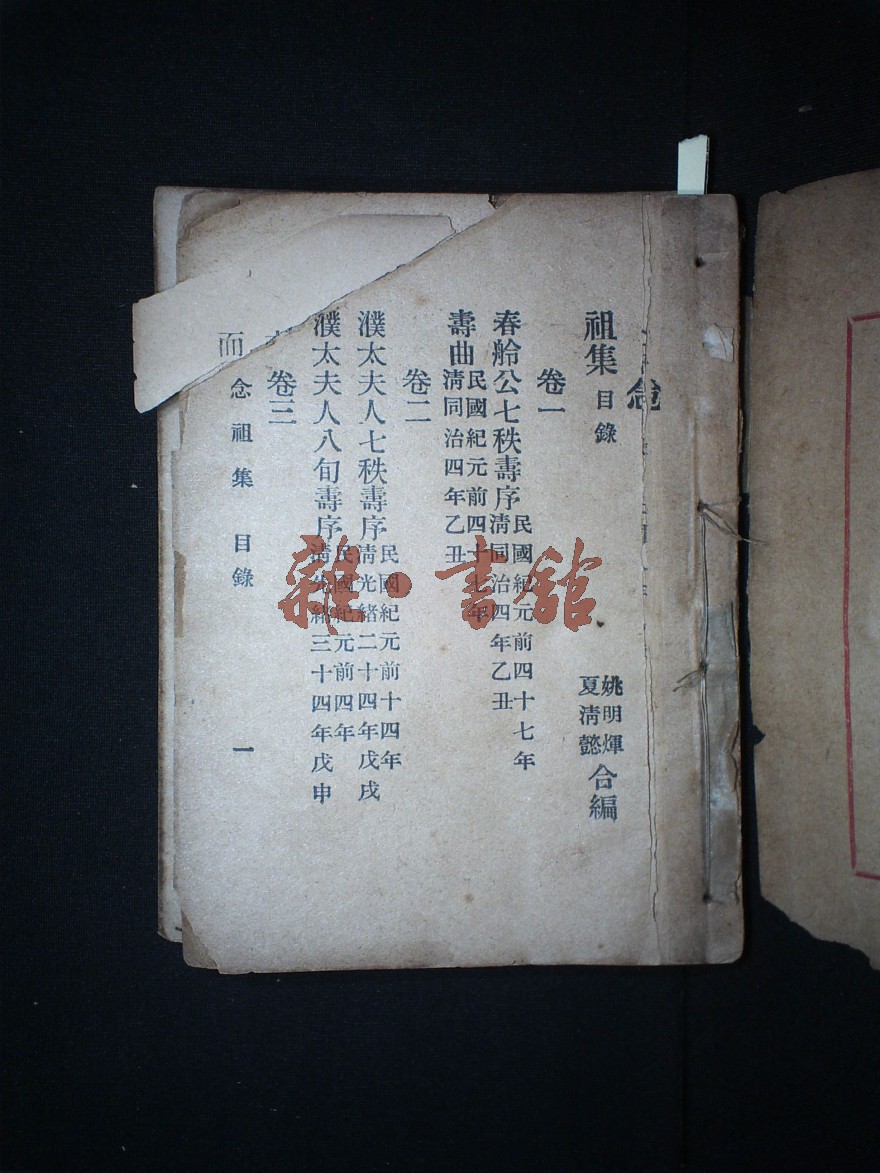 念
祖集 目錄
姚明煇
夏清懿 合編
卷一
春舲公七秩壽序 民國紀元前四十七年
清同治四年乙丑
壽曲 民國紀元前四十七年
清同治四年乙丑
卷二
濮太夫人七秩壽序 民國紀元前十四年
清光緒二十四年戊戌
濮太夫人八旬壽序 民國紀元前四年
清光緒三十四年戊申
卷三
而念祖集 目錄 一
雜·書館